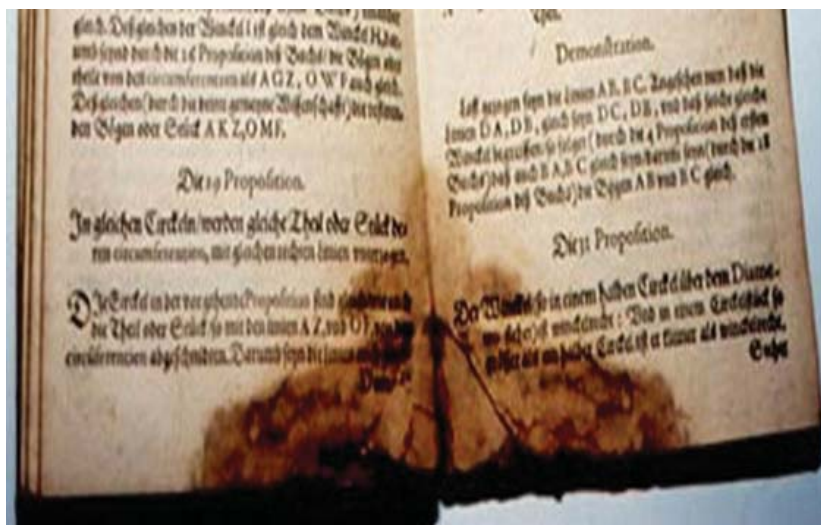 gleich. Deßgleichen der Winckel I ist gleich dem Winckel H, dar-
umb seynd durch die 26 Proposition deß Buchs / die Bögen oder
theile von den circumferencien als A G Z, O W F auch gleich.
Deßgleichen / durch die dritte gemeyne Wissenschafft /
den Bögen oder Stück A K Z, O M F.
Die 29 Proposition.
In gleichen Circkeln / werden gleiche Theil oder Stück der
circumferencien, mit gleichen rechten linien
Die Circkel in der vorgehende Proposition sind gleich
die Theil oder Stück so mit den linien A Z, vnd O F, von den
circumferencien abgeschnidten. Darumb seyn die linien
Demonstration.
Lasß gezogen seyn die linien A B, B C. Angesehen nun daß die
linien D A, D B, gleich seyn D C, D B, vnd daß solche gleiche
Winckel so folget (durch die 4 Proposition deß ersten
Buchs) daß auch B A, B C gleich seyn darumb seyn (durch die 28
Proposition deß Buchs) die Bögen A B vnd B C gleich.
Die 31 Proposition.
Der Winckel so in einem halben Circkel über dem Diame-
ist winckelrecht: Vnd in einem Circkelstück so
grösser als ein halber Circkel ist er kleiner als winckelrecht.